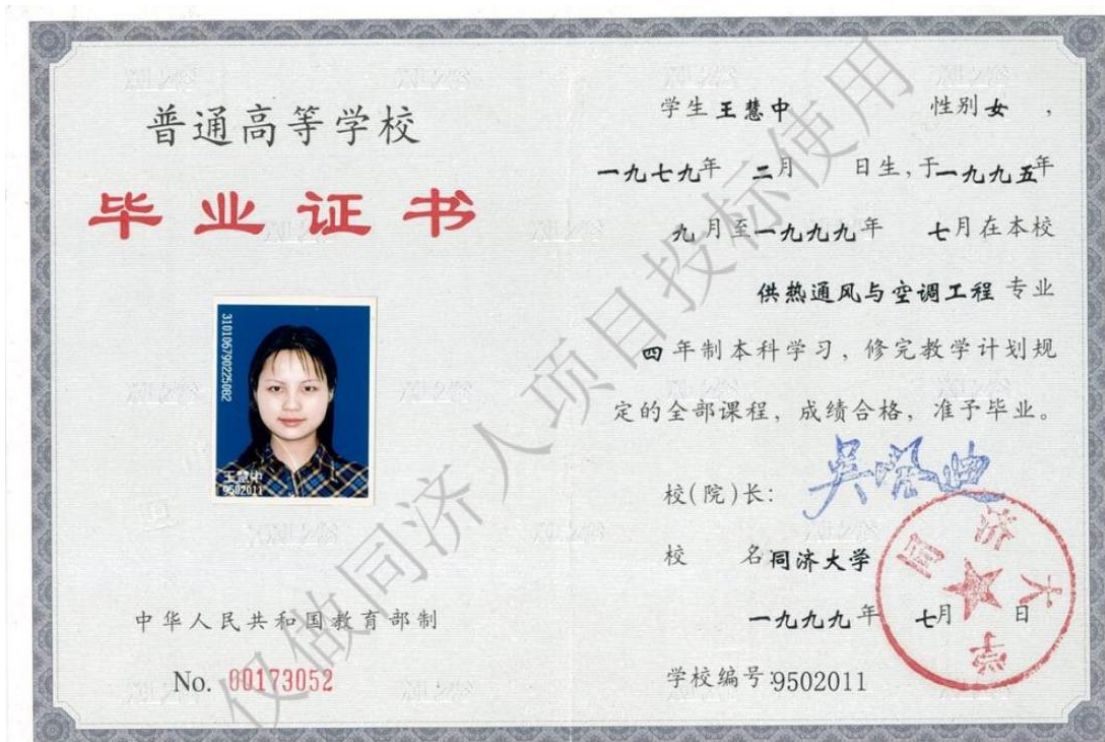 普通高等学校
毕业证书
310106790225082
王慧中
9502011
中华人民共和国教育部制
No. 00173052
学生王慧中 性别女,
一九七九年 二月 日生,于一九九五年
九月至一九九九年 七月在本校
供热通风与空调工程专业
四年制本科学习,修完教学计划规
定的全部课程,成绩合格,准予毕业。
校(院)长:吴启迪
校 名同济大学
一九九九年 七月 日
学校编号:9502011
同济大学
仅做同济人项目投标使用